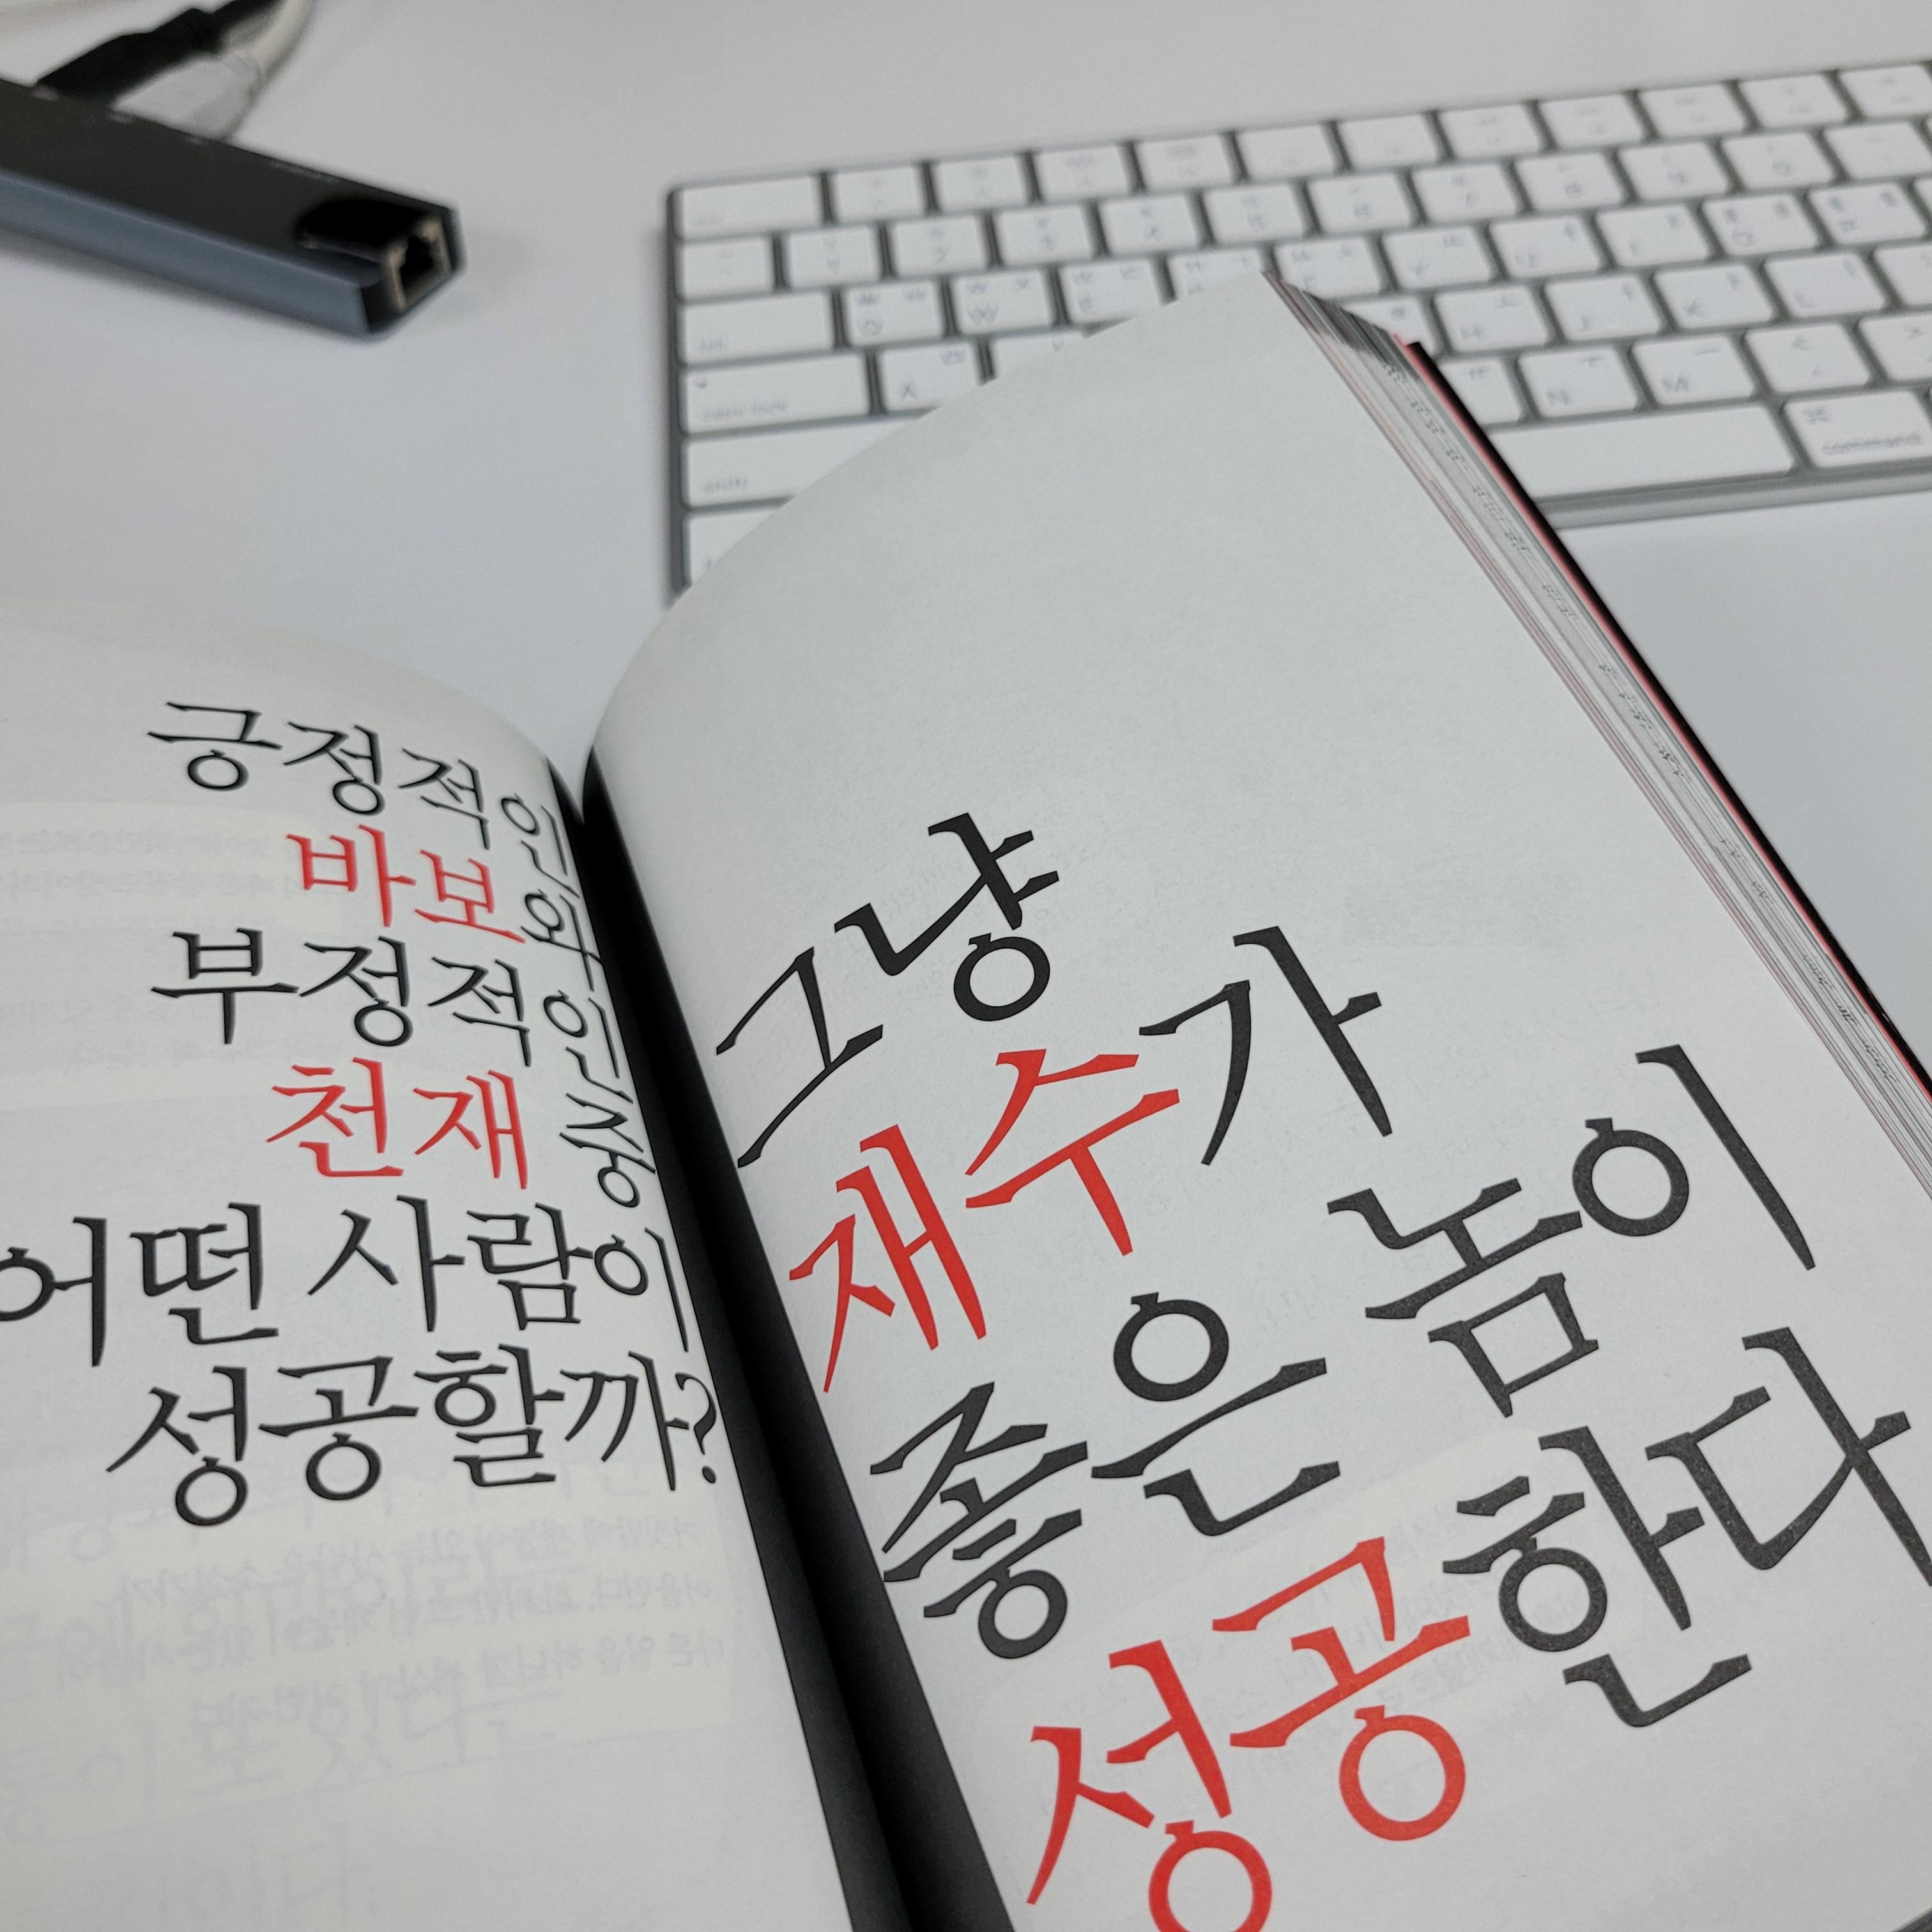 긍정적인
바보와
부정적인
천재 중
어떤 사람이
성공할까?
그냥
재수가
좋은 놈이
성공한다
command